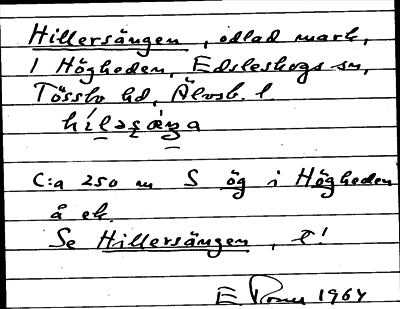 Hillersängen, odlad mark,
1 Högheden, Edsleskogs sn,
Tössbo hd, Älvsb. l.
C:a 250 m S ög i Högheden
å ek.
Se Hillersängen, t!
E 1964